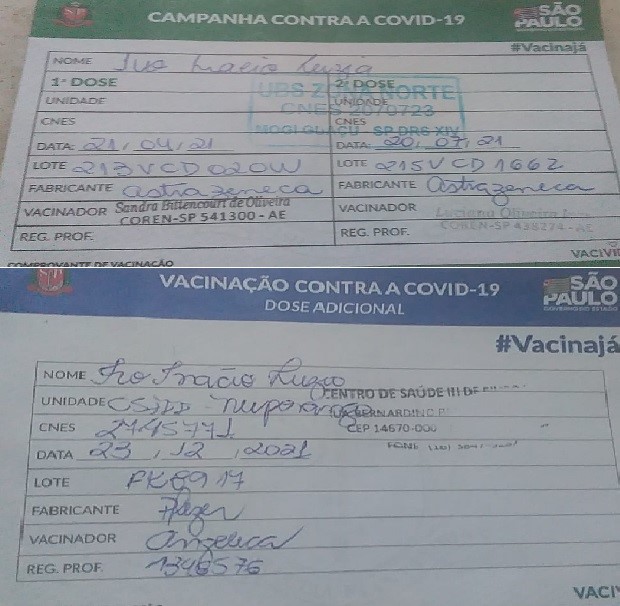 CAMPANHA CONTRA A COVID-19
SÃO PAULO
#Vacinajá
NOME
1ª DOSE 2ª DOSE
UNIDADE UNIDADE
CNES CNES
UBS ZONA NORTE
CNES 2070723
MOGI GUAÇU SP DRS XIV
DATA: 21, 04, 21 DATA: 20, 07, 21
LOTE 213VCD020W LOTE 215VCD166Z
FABRICANTE astrazeneca FABRICANTE Astrazeneca
VACINADOR Sandra Bittencourt de Oliveira VACINADOR Luciana Oliveira
COREN-SP 541300 - AE COREN-SP 438274 - AE
REG. PROF. REG. PROF.
COMPROVANTE DE VACINAÇÃO
VACINAÇÃO CONTRA A COVID-19
DOSE ADICIONAL
SÃO PAULO
GOVERNO DO ESTADO
#Vacinajá
NOME
UNIDADE CENTRO DE SAÚDE III DE
BERNARDINO
CNES 2745771 CEP 14670-000
DATA 23, 12, 2021
LOTE
FABRICANTE Pfizer
VACINADOR Angelica
REG. PROF. 1346576